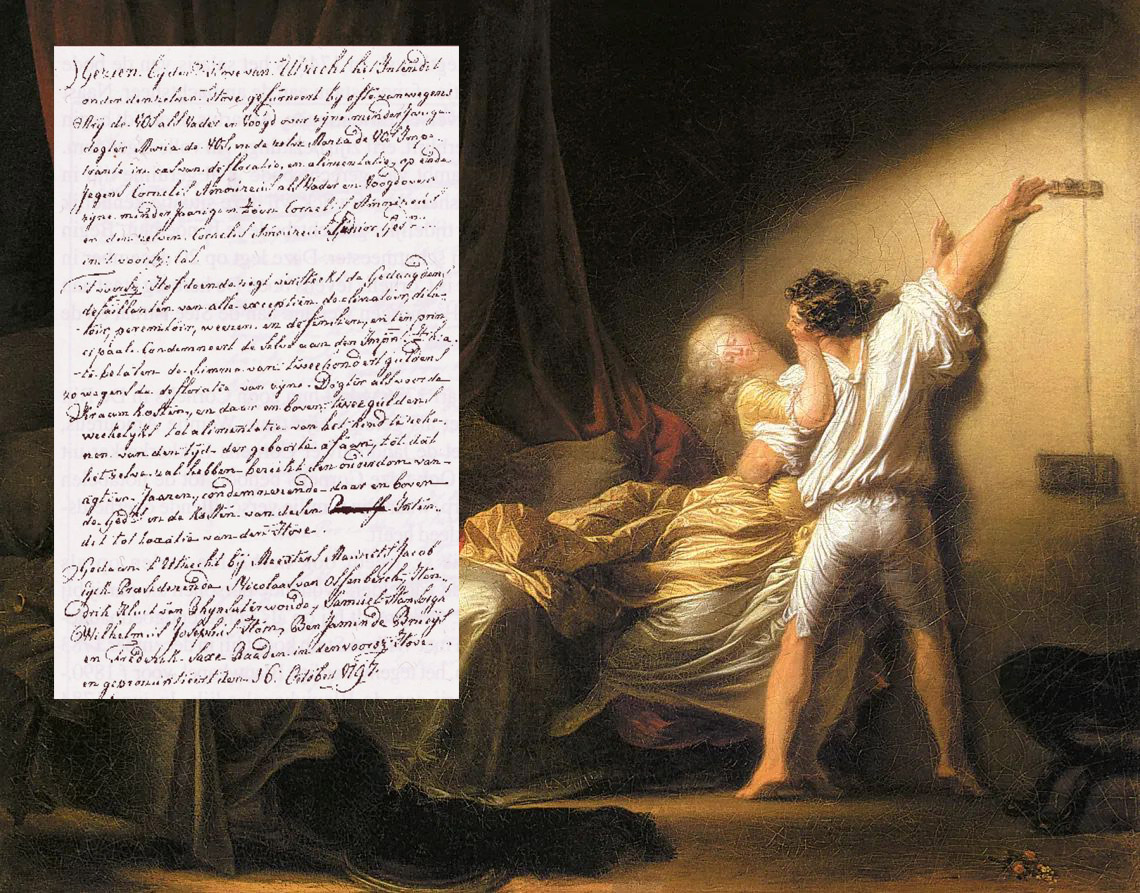 Gezien bij den Hove van Utrecht het Intendit
onder den zelven Hove gefurneert by ofte van wegens
de Vos als Vader en Voogd over zyne minderjarige
dogter Maria de Vos, en de zelve Maria de Vos Imp-
trante in cas van defloratie, en alimentatie, op ende
jegens Cornelis Amoureus als Vader en Voogd over
zijne minderjaarigen Zoon Cornelis Amoureus
en den zelven Cornelis Amoureus Junior, Ged
in 't voorsz: Cas.
't voorsz: Hof doende regt versteekt de Gedaagdens
defaillanten van alle exceptien declinatoir, dila-
toir, peremtoir, weezen en defensien, en ten prin
cipaale Condemneert de selve aan den Impt.
te betalen de Somma van twee hondert guldens
zo wegens de defloratie van zijne Dogter als voor de
Kraam Kosten, en daar en boven twee guldens
weekelijks tot alimentatie van het kind te reke-
nen van den tijd der geboorte af aan, tot dat
het zelve zal hebben bereikt den ouderdom van
agtien Jaaren, condemneerende daar en boven
de Geds in de Kosten van desen Inten-
dit tot taxatie van den Hove.
Gedaan t' Utrecht bij Meesters Jacob
Presiderende Nicolaas van Hen-
drik van Rhynsaterwoude, Samuel
Wilhelmus Josephus Benjamin de
en Frederik Raaden in den voorsz: Hove
en gepronuntieert den 16: October 1797